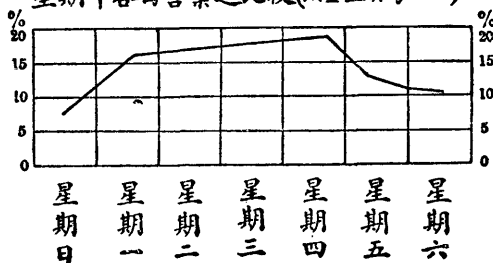 營業之比較
%
20
15
10
5
0
%
20
15
10
5
0
星期日
星期一
星期二
星期三
星期四
星期五
星期六